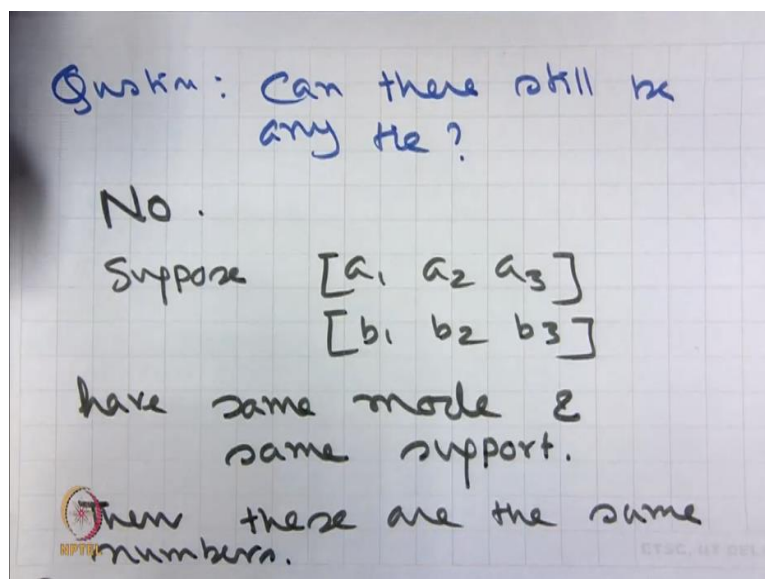 Question: Can there still be
any tie?
No.
Suppose [a₁ a₂ a₃]
[b₁ b₂ b₃]
have same mode &
same support.
Then these are the same
numbers.
NPTEL
ETSC, IIT DEL